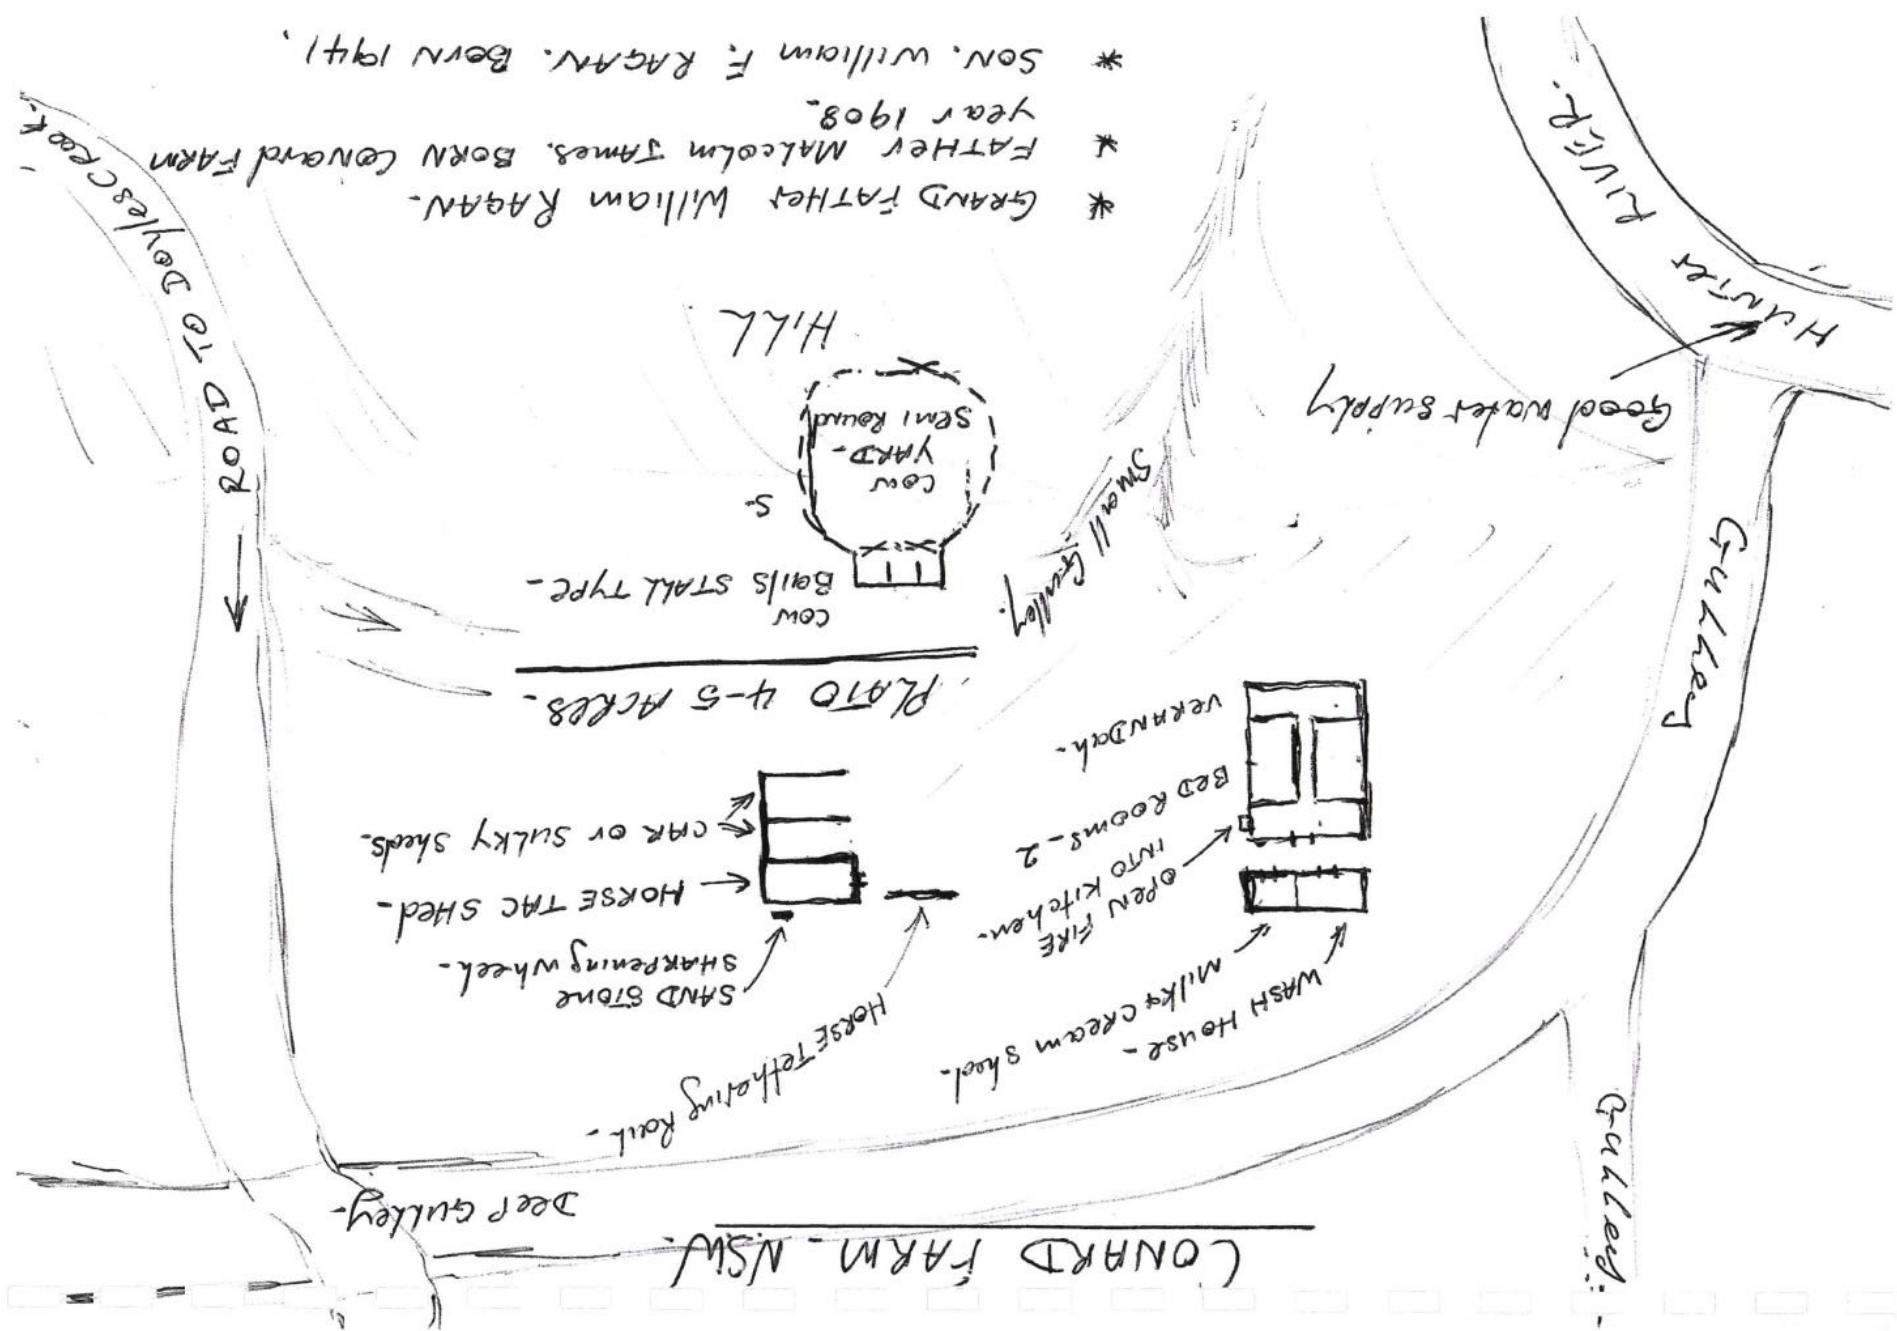 CONARD FARM - NSW.
DEEP GULLEY-
Gulley.
WASH HOUSE-
Milk & CREAM Shed.
HORSE Tethering Rail-
SAND STONE
SHARPening wheel-
HORSE TAC SHED-
CAR or SULKY Sheds-
OPEN FIRE
INTO KITchen-
BED ROOMS-2
VERANDah-
Gulley
PLATO 4-5 ACRES-
COW
Bails STALL TYPE-
Small Gulley.
S-
COW
YARD-
Semi Round
HILL
Good water supply
HUNTER RIVER.
ROAD TO Doyles CReek.
* GRAND FATHER William RAGAN-
* FATHER MALcolm JAMES. BORN CONARD FARM
year 1908-
* SON. William F. RAGAN. BORN 1941.